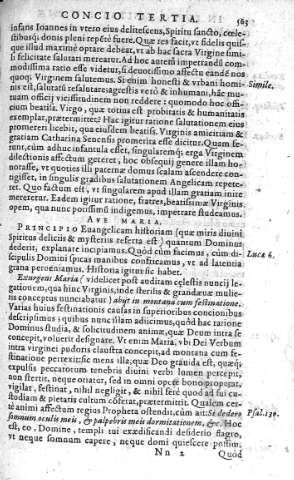 CONCIO TERTIA. 183
infans Ioannes in vtero eius delitescens, Spiritu sancto, cœle-
stibusq; donis pleni repetè fuere. Quæ res facit, vt fidelis quis-
que illud maximè optare debeat, vt ab hac sacra Virgine simi-
li felicitate salutari mereatur. Ad hoc autem impetrandū com-
modissima ratio esse videtur, si deuotissimo affectu eandē nos
quoq; Virginem salutemus. Sicenim honesti & vrbani homi- Simile.
nis est, salutātē resalutare: agrestis vetò & inhumani, hoc mu-
tuum officij vicissitudinem non reddere: quomodo hoc offi-
cium beatissima Virgo, quæ totius est probitatis & humanitatis
exemplar, prætermittet? Hac igitur ratione salutationem eius
promereri licebit, qua eiusdem beatiss. Virginis amicitiam &
gratiam Catharina Senensis promerita esse dicitur. Quum fe-
runt, cum adhuc infantula esset, singularemq; erga Virginem
dilectionis affectum gereret, hoc obsequij genere illam ho-
norasse, vt quoties illi paternæ domus scalam ascendere con-
tigisset, in singulis gradibus salutationem Angelicam repete-
ret. Quo factum est, vt singularem apud illam gratiam inire
mereretur. Eadem igitur ratione, fratres, beatissimæ Virginis
opem, qua nunc potissimū indigemus, impetrare studeamus.
AVE MARIA.
PRINCIPIO Euangelicam historiam (quæ miris diuini
Spiritus delitiis & mysteriis referta est) quantum Dominus
dederit, explanare incipiamus. Quòd cùm facimus, cùm di-
scipulis Domini spicas manibus constricamus, vt ad latentia Luca 6.
grana perueniamus. Historia igitur sic habet.
Exurgens Maria (videlicet post auditam cælestis nuncij le-
gationem, qua hinc Virginis, inde sterilis & grandæuæ mulie-
ris conceptus nunciabatur) abijt in montana cum festinatione.
Varias huius festinationis causas in superioribus concionibus
descripsimus: quibus nunc illam adiicimus, quòd hac ratione
Dominus studia, & solicitudinem animæ, quæ Deum intra se
concepit, voluerit designare. Vt enim Maria, vbi Dei Verbum
intra virginei pudoris claustra concepit, ad montana cum fe-
stinatione perrexit: sic mens illa, quæ Deo grauida est, quæq;
expulsis peccatorum tenebris diuini verbi lumen percepit,
non stertit, neque oriatur, sed in omni opere bono properat,
vigilat, festinat, nihil negligit, & nihil ferè quod ad sui cu-
stodiam & pietatis cultum conferat, prætermittit. Qualem cer-
tè animi affectum regius Propheta ostendit, cùm ait: Si dedero Psal. 131.
somnum oculis meis, & palpebris meis dormitationem, &c. Hoc
est, eo, Domine, templi tui exædificandi desiderio flagro,
vt neque somnum capere, neque domi quiescere possim,
Nn 2 Quòd